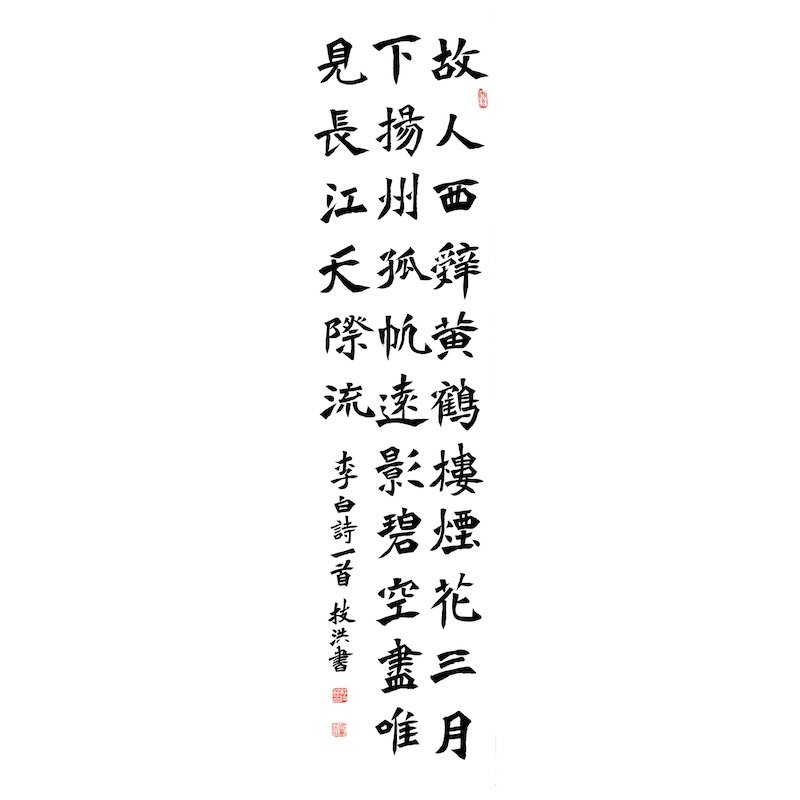 故人西辤黄鶴樓煙花三月
下揚州孤帆遠影碧空盡唯
見長江天際流
李白詩一首 技洪書